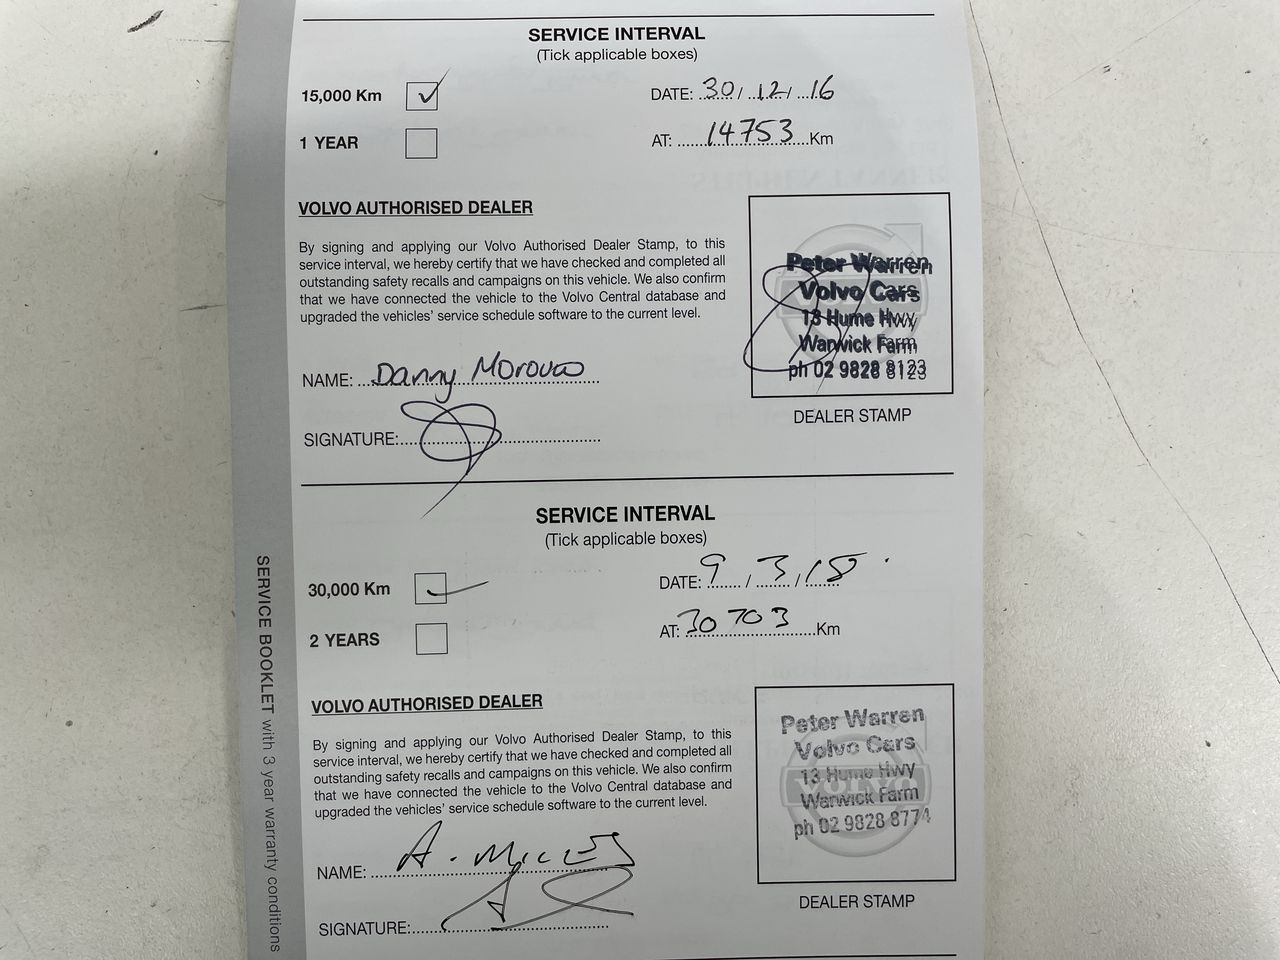 SERVICE INTERVAL
(Tick applicable boxes)
15,000 Km
DATE: 30/12/16
1 YEAR
AT: 14753 Km
VOLVO AUTHORISED DEALER
By signing and applying our Volvo Authorised Dealer Stamp, to this
service interval, we hereby certify that we have checked and completed all
outstanding safety recalls and campaigns on this vehicle. We also confirm
that we have connected the vehicle to the Volvo Central database and
upgraded the vehicles' service schedule software to the current level.
Peter Warren
Volvo Cars
13 Hume Hwy
Warwick Farm
ph 02 9828 8123
NAME: Danny
SIGNATURE:
DEALER STAMP
SERVICE INTERVAL
(Tick applicable boxes)
30,000 Km
DATE: 9/3/18
2 YEARS
AT: 30703 Km
VOLVO AUTHORISED DEALER
By signing and applying our Volvo Authorised Dealer Stamp, to this
service interval, we hereby certify that we have checked and completed all
outstanding safety recalls and campaigns on this vehicle. We also confirm
that we have connected the vehicle to the Volvo Central database and
upgraded the vehicles' service schedule software to the current level.
Peter Warren
Volvo Cars
13 Hume Hwy
Warwick Farm
ph 02 9828 8774
VOLVO
NAME: A.
SIGNATURE:
DEALER STAMP
SERVICE BOOKLET with 3 year warranty conditions